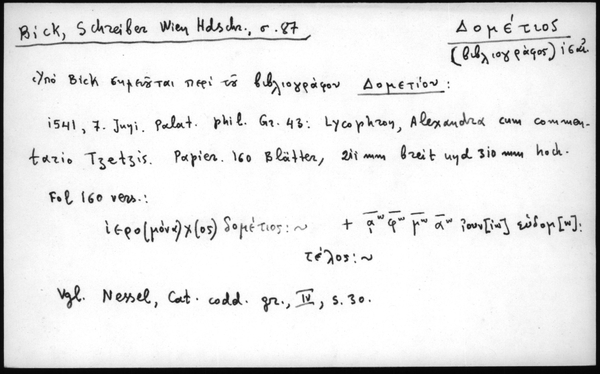 Bick, Schreiber Wien Hdschr., σ. 87
Δομέτιος
(βιβλιογράφος)
Ὑπὸ Bick σημειοῦται περὶ τοῦ βιβλιογράφου Δομετίου:
1541, 7. Juni. Palat. phil. Gr. 43: Lycophron, Alexandra cum commen-
tario Tzetzis. Papier. 160 Blätter, 211 mm breit und 310 mm hoch.
Fol 160 vers.:
ἱερο(μόνα)χ(ος) δομέτιος:~ + ᾳʷ φʷ μʷ αʷ ἰουν[ίω] εὐδομ[ω]:
τέλος:~
Vgl. Nessel, Cat. codd. gr., IV, S. 30.